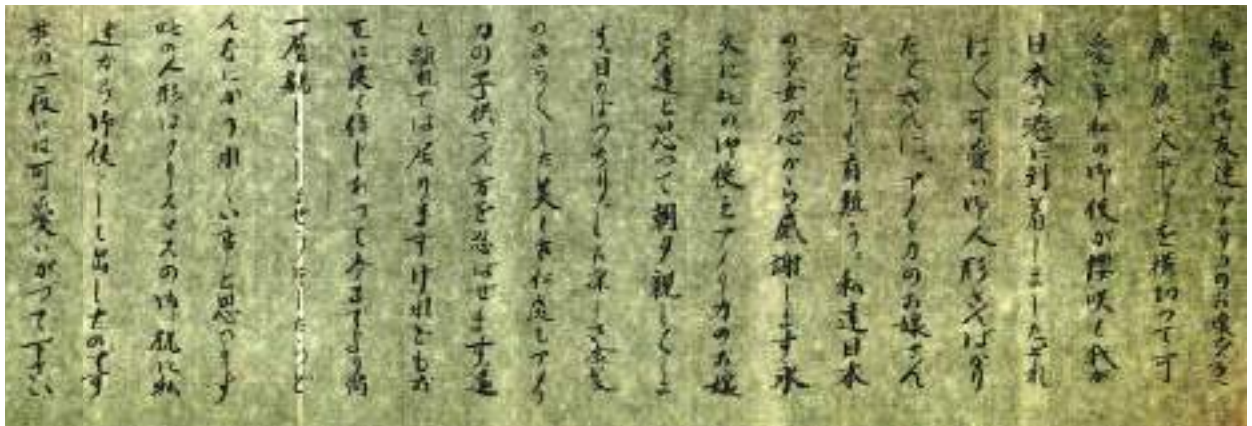 私達の御友達アメリカのお嬢さま
廣い廣い太平洋を横切つて可
愛い平和の御使が櫻咲く我が
日本の港に到着しましたそれ
はく可愛い御人形さんばかり
たくさんに、アメリカのお嬢さん
方どうも有難う。私達日本
の少女が心から感謝します永
久に此の御使をアメリカのお嬢
さん達と思つて朝夕親しくしま
す、目のぱつちりした
のふつくらした美しさ何處もアメリ
カの子供さん方を忍ばせます遠
く離れては居りますけれどもお
互に浅く信じあつて今までより尚
一層親しくしませうでしたらど
んなにか嬉しい事と思ひます
此の人形はクリスマスの御祝に私
達から御使として出したのです
其の一夜には可愛いがつて下さい